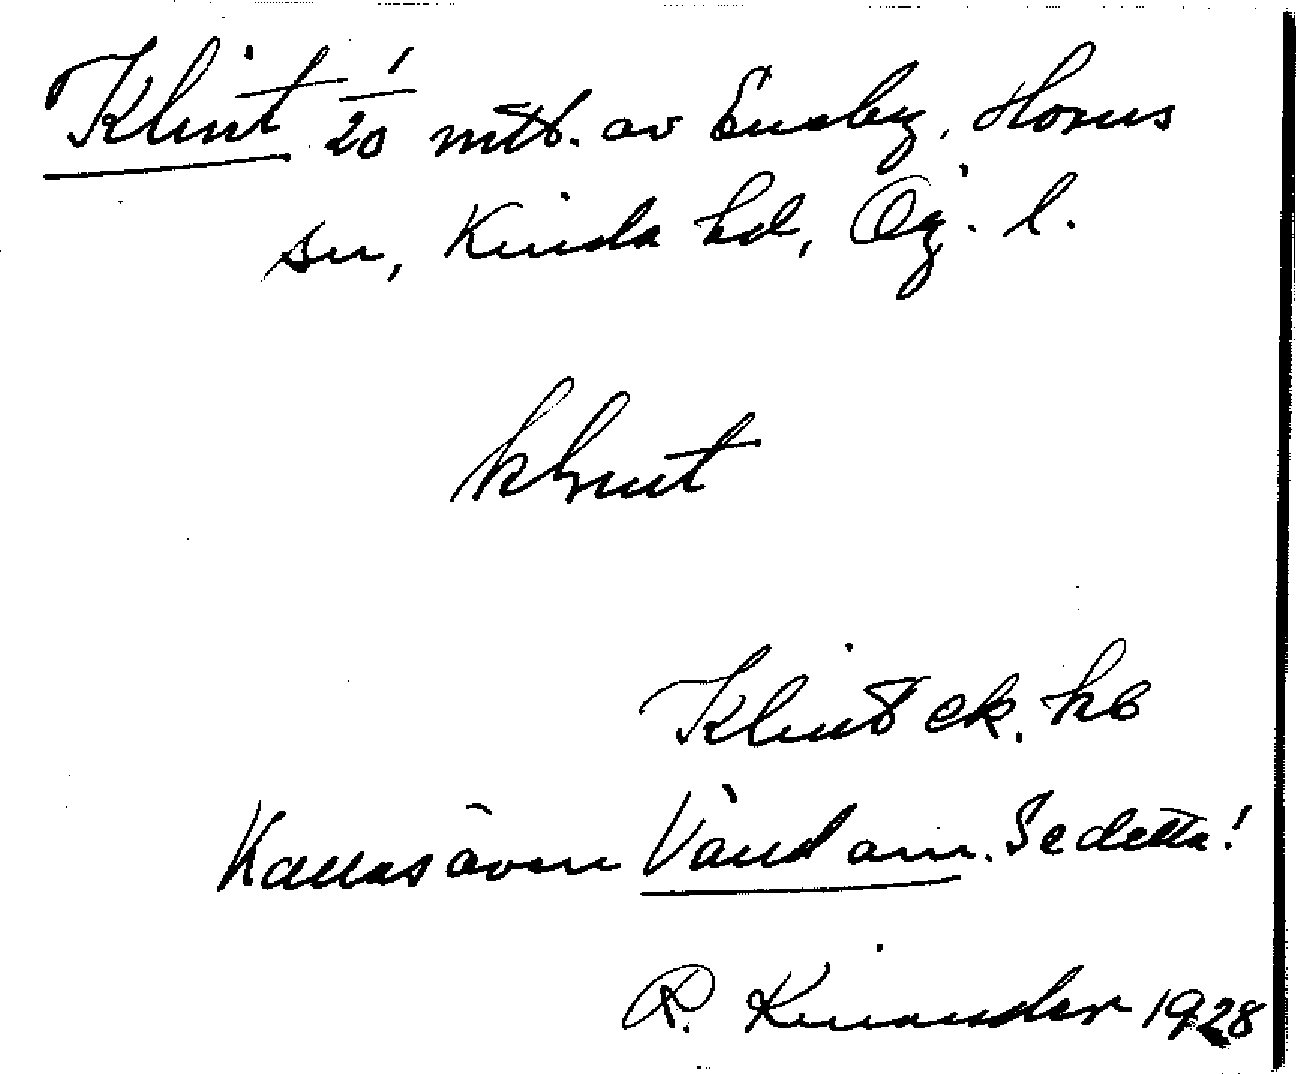 Klint 1/20 mtl. av Eneby, Horns
sn, Kinda hd, Ög. l.
klint
Klint ek. kb
Kallas även Vänd om. Se detta!
R. Kinander 1928